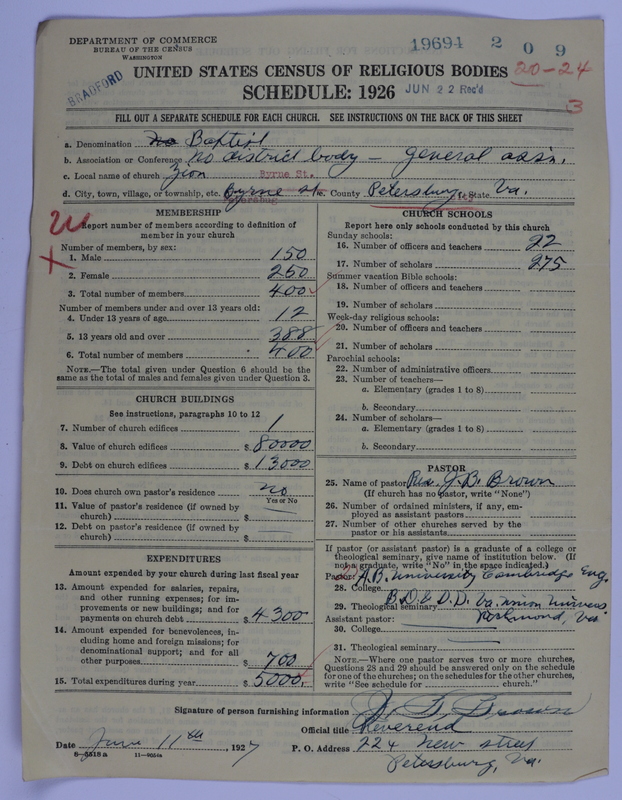 DEPARTMENT OF COMMERCE
BUREAU OF THE CENSUS
WASHINGTON
19694 2 0 9
BRADFORD
UNITED STATES CENSUS OF RELIGIOUS BODIES
20-24
SCHEDULE: 1926
JUN 22 Rec'd
3
FILL OUT A SEPARATE SCHEDULE FOR EACH CHURCH. SEE INSTRUCTIONS ON THE BACK OF THIS SHEET
a. Denomination No Baptist
b. Association or Conference No district body – general assn.
c. Local name of church Zion Byrne St.
d. City, town, village, or township, etc. Byrne St. e. County Petersburg, State Va.
Petersbug
MEMBERSHIP
Report number of members according to definition of member in your church
Number of members, by sex:
1. Male 150
2. Female 250
3. Total number of members 400
Number of members under and over 13 years old:
4. Under 13 years of age 12
5. 13 years old and over 388
6. Total number of members 400
NOTE.—The total given under Question 6 should be
same as the total of males and females given under Question 3.
CHURCH BUILDINGS
See instructions, paragraphs 10 to 12
7. Number of church edifices 1
8. Value of church edifices $80000
9. Debt on church edifices $13000
10. Does church own pastor's residence no
Yes or No
11. Value of pastor's residence (if owned by
church) $
12. Debt on pastor's residence (if owned by
church) $
EXPENDITURES
Amount expended by your church during last fiscal year
13. Amount expended for salaries, repairs,
and other running expenses; for im-
provements or new buildings; and for
payments on church debt $4300
14. Amount expended for benevolences, in-
cluding home and foreign missions; for
denominational support; and for all
other purposes $700
15. Total expenditures during year $5000
CHURCH SCHOOLS
Report here only schools conducted by this church
Sunday schools:
16. Number of officers and teachers 22
17. Number of scholars 275
Summer vacation Bible schools:
18. Number of officers and teachers
19. Number of scholars
Week-day religious schools:
20. Number of officers and teachers
21. Number of scholars
Parochial schools:
22. Number of administrative officers
23. Number of teachers—
a. Elementary (grades 1 to 8)
b. Secondary
24. Number of scholars—
a. Elementary (grades 1 to 8)
b. Secondary
PASTOR
25. Name of pastor Rev. J. B. Brown
(If church has no pastor, write "None")
26. Number of ordained ministers, if any, em-
ployed as assistant pastors
27. Number of other churches served by the
pastor or his assistants
If pastor (or assistant pastor) is a graduate of a college or
theological seminary, give name of institution below. (If
not a graduate, write "No" in the space indicated.)
Pastor:
28. College A.B. University Cambridge Eng.
29. Theological seminary B.D. & D.D. Va. Union Univers.
Assistant pastor: Richmond, Va.
30. College
31. Theological seminary
NOTE.—Where one pastor serves two or more churches,
Questions 28 and 29 should be answered only on the schedule
for one of the churches; on the schedules for the other churches,
write "See schedule for church."
Signature of person furnishing information J. B. Brown
Official title Reverend
Date June 11th, 1927 P. O. Address 224 New street
8-5518a 11-9554a Petersburg, Va.